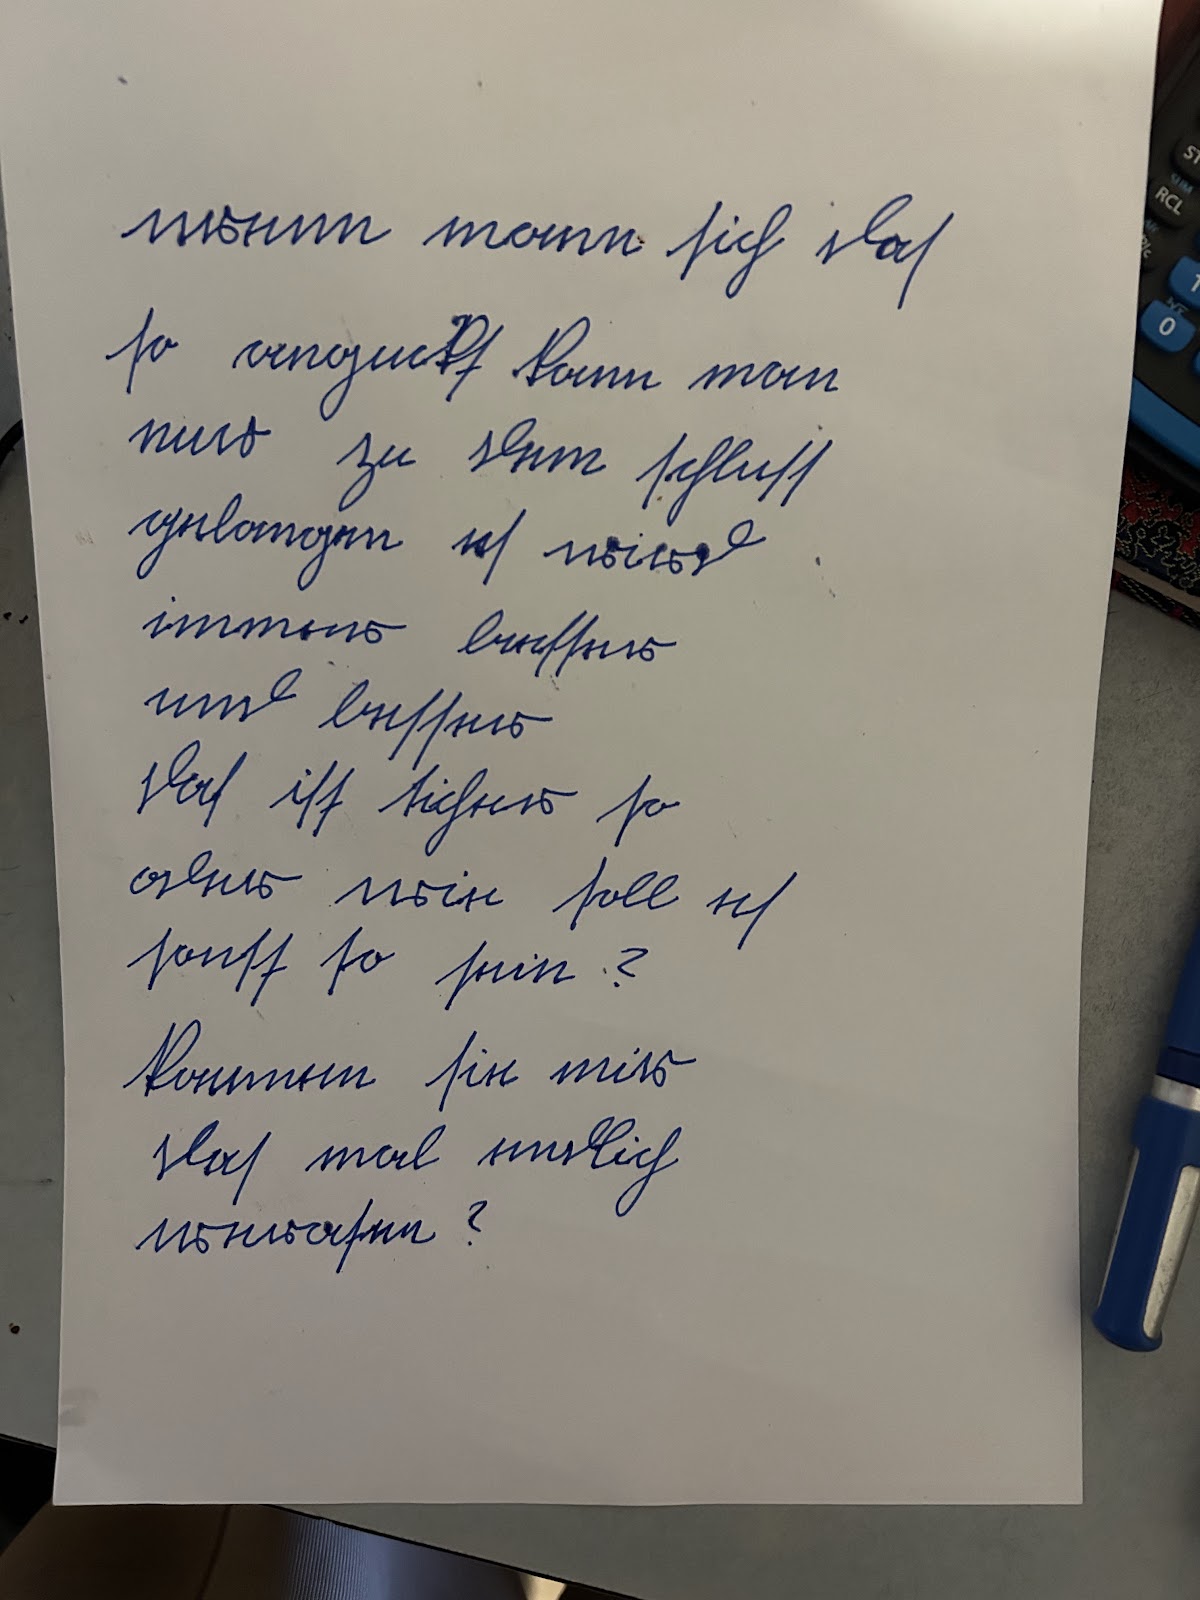 wenn mann sich das
so anguckt kann man
nur zu dem schluss
gelangen es wird
immer besser
und besser
das ist sicher so
aber wie soll es
sonst so sein ?
können sie mir
das mal endlich
verraten ?